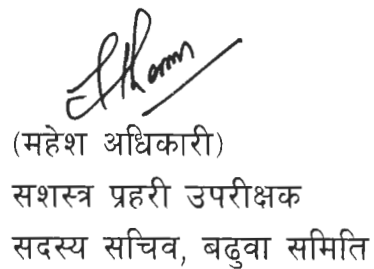 (महेश अधिकारी)
सशस्त्र प्रहरी उपरीक्षक
सदस्य सचिव, बढुवा समिति